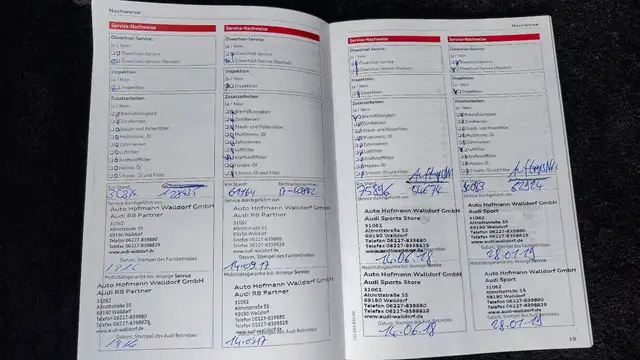 Nachweise
Service-Nachweise
Ölwechsel-Service:
Ja / Nein
Ölwechsel-Service
Ölwechsel-Service (flexibel)
Inspektion:
Ja / Nein
Inspektion
Zusatzarbeiten:
Ja / Nein
Bremsflüssigkeit
Zündkerzen
Staub- und Pollenfilter
Multitronic, Öl
Zahnriemen
Luftfilter
Kraftstofffilter
Haldex, Öl
S tronic, Öl und Filter
km-Stand
Service durchgeführt von:
Auto Hofmann Walldorf GmbH
Audi R8 Partner
31062
Altrottstraße 55
69190 Walldorf
Telefon 06227-839880
Telefax 06227-8398829
www.audi-walldorf.de
Datum, Stempel des Fachbetriebes
Mobilitätsgarantie bis: Anzeige Service
Auto Hofmann Walldorf GmbH
Audi R8 Partner
31062
Altrottstraße 55
69190 Walldorf
Telefon 06227-839880
www.audi-walldorf.de
Service-Nachweise
Ölwechsel-Service:
Ja / Nein
Ölwechsel-Service
Ölwechsel-Service (flexibel)
Inspektion:
Ja / Nein
Inspektion
Zusatzarbeiten:
Ja / Nein
Bremsflüssigkeit
Zündkerzen
Staub- und Pollenfilter
Multitronic, Öl
Zahnriemen
Luftfilter
Kraftstofffilter
Haldex, Öl
S tronic, Öl und Filter
km-Stand
Service durchgeführt von:
Auto Hofmann Walldorf GmbH
Audi R8 Partner
31062
Altrottstraße 55
69190 Walldorf
Telefon 06227-839880
Telefax 06227-8398829
www.audi-walldorf.de
Datum, Stempel des Fachbetriebes
14.09.17
Mobilitätsgarantie bis: Anzeige Service
Auto Hofmann Walldorf GmbH
Audi R8 Partner
31062
Altrottstraße 55
69190 Walldorf
Telefon 06227-839880
14.09.17
Nachweise
Service-Nachweise
Ölwechsel-Service:
Ja / Nein
Ölwechsel-Service
Ölwechsel-Service (flexibel)
Inspektion:
Ja / Nein
Inspektion
Zusatzarbeiten:
Ja / Nein
Bremsflüssigkeit
Zündkerzen
Staub- und Pollenfilter
Multitronic, Öl
Zahnriemen
Luftfilter
Kraftstofffilter
Haldex, Öl
S tronic, Öl und Filter
km-Stand
75896 54674
Service durchgeführt von:
Auto Hofmann Walldorf GmbH
Audi Sports Store
31062
Altrottstraße 55
69190 Walldorf
Telefon 06227-839880
www.audi-walldorf.de
14.06.18
Mobilitätsgarantie bis: Anzeige Service
Auto Hofmann Walldorf GmbH
Audi Sports Store
31062
Altrottstraße 55
69190 Walldorf
Telefon 06227-839880
www.audi-walldorf.de
14.06.18
Service-Nachweise
Ölwechsel-Service:
Ja / Nein
Ölwechsel-Service
Ölwechsel-Service (flexibel)
Inspektion:
Ja / Nein
Inspektion
Zusatzarbeiten:
Ja / Nein
Bremsflüssigkeit
Zündkerzen
Staub- und Pollenfilter
Multitronic, Öl
Zahnriemen
Luftfilter
Kraftstofffilter
Haldex, Öl
S tronic, Öl und Filter
Service durchgeführt von:
Auto Hofmann Walldorf GmbH
Audi Sport
31062
Altrottstraße 55
69190 Walldorf
Telefon 06227-839880
www.audi-walldorf.de
28.01.19
Mobilitätsgarantie bis: Anzeige Service
Auto Hofmann Walldorf GmbH
Audi Sport
31062
Altrottstraße 55
69190 Walldorf
www.audi-walldorf.de
28.01.19